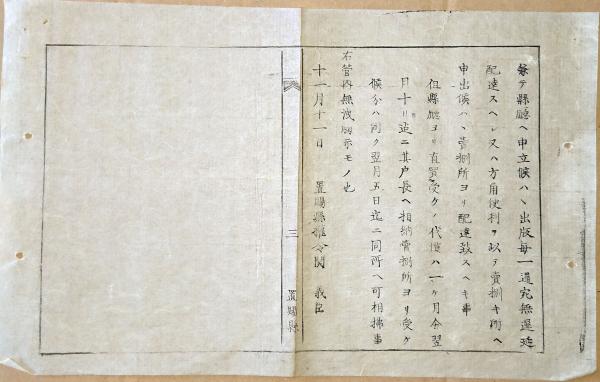 兼テ縣廳ヘ申立候ハヽ出版毎一適宛無遅延
配達スヘシ又ハ方角便利ヲ以テ賣捌キ所ヘ
申出候ハヽ賣捌所ヨリ配達致スヘキ事
但縣廳ヨリ直買受クル代價ハ一ヶ月分翌
月十日迄ニ其戸長ヘ相納賣捌所ヨリ受ケ
候分ハ同ク翌月五日迄ニ同所ヘ可相拂事
右管内無洩觸示モノ也
十一月十一日 置賜縣権令関 義臣
三
置賜縣